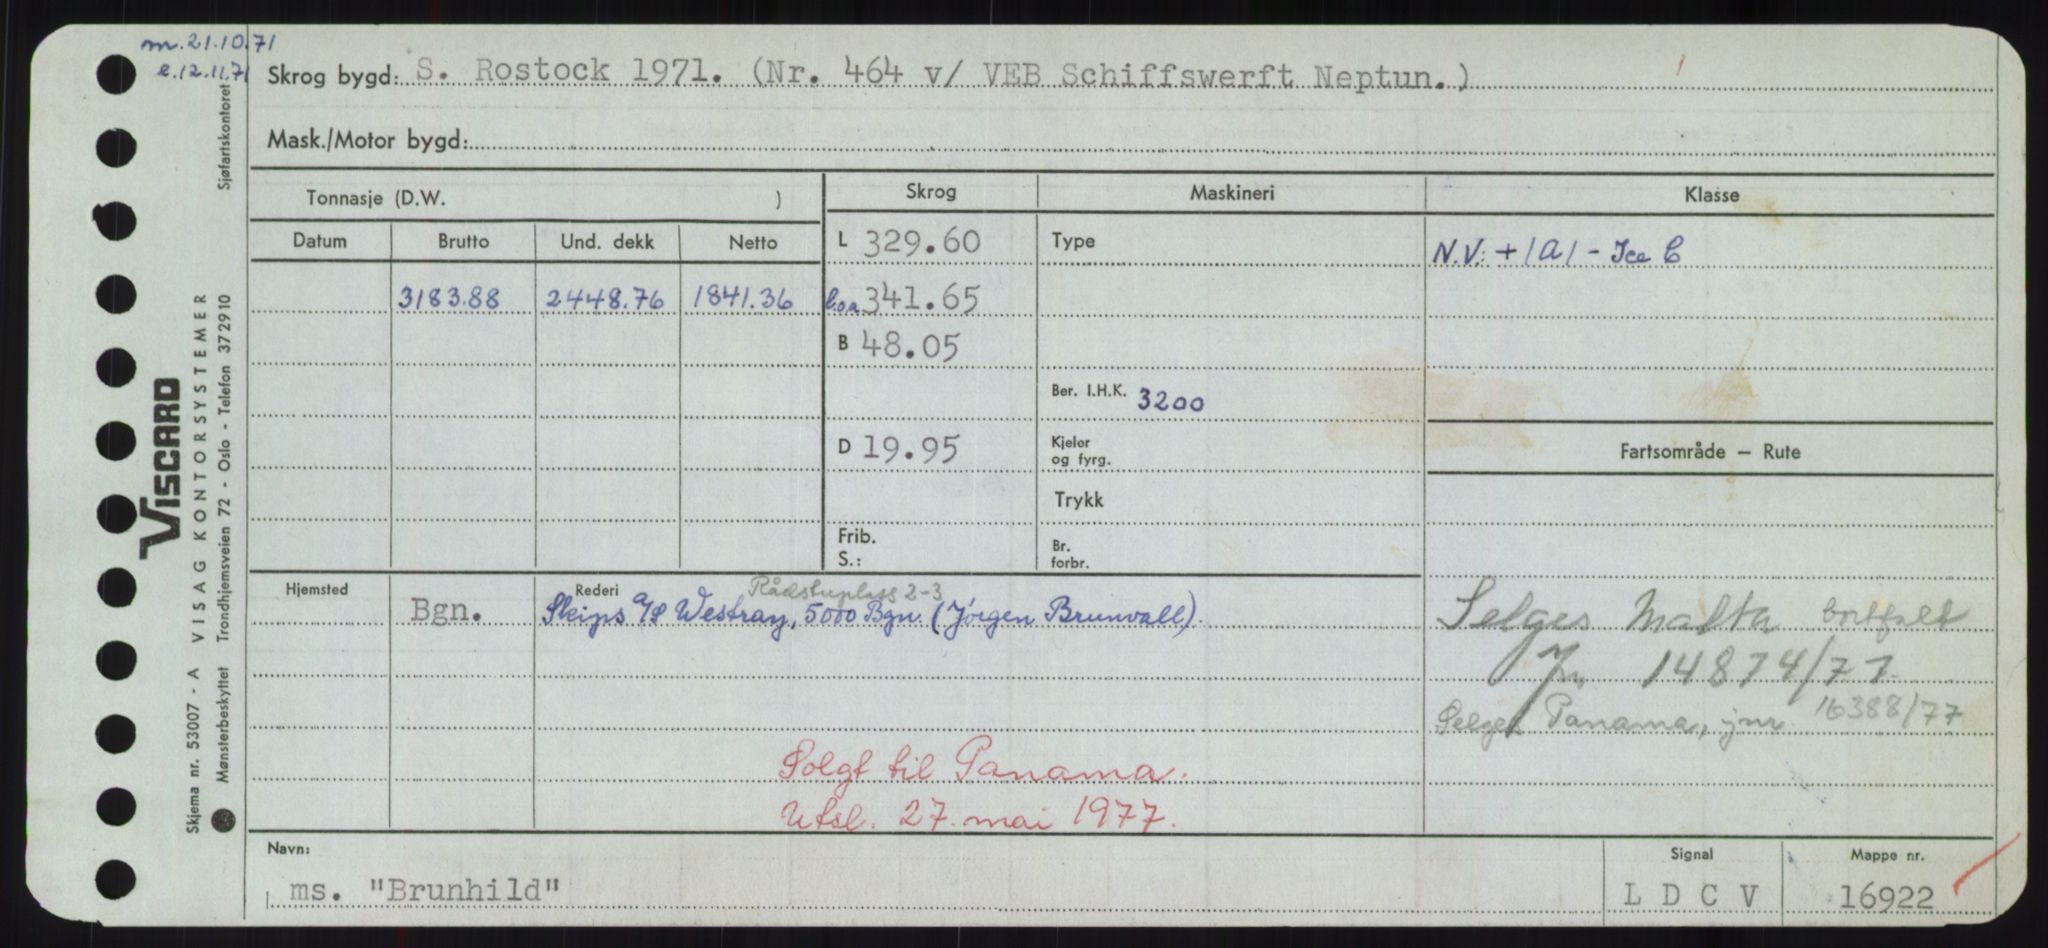 m.21.10.71
e.12.11.71
Skrog bygd: S. Rostock 1971. (Nr. 464 v/ VEB Schiffswerft Neptun.)
Mask./Motor bygd:
Tonnasje (D.W. )
Skrog
Maskineri
Klasse
Datum
Brutto
Und. dekk
Netto
L 329.60
Type
N.V: +1A1 - Ice C
3183.88
2448.76
1841.36
l.o.a 341.65
B 48.05
Ber. I.H.K. 3200
D 19.95
Kjeler
og fyrg.
Fartsområde — Rute
Trykk
Frib.
S.:
Br.
forbr.
Hjemsted
Bgn.
Rederi
Rådstuplass 2-3
Skips A/S Westray, 5000 Bgn. (Jörgen Brunvall).
Selges Malta bortfalt
Jnr. 14874/77
Selges Panama, jnr. 16388/77
Solgt til Panama.
Utsl. 27. mai 1977.
Navn:
ms. "Brunhild"
Signal
L D C V
Mappe nr.
16922
VISCARD
Skjema nr. 53007 - A VISAG KONTORSYSTEMER
Mønsterbeskyttet Trondhjemsveien 72 - Oslo - Telefon 37 29 10 Sjøfartskontoret